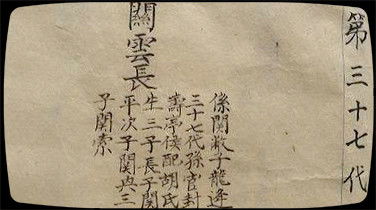 第三十七代
關雲長
係關子龍逢
三十七代孫官封
壽亭侯配胡氏
生三子長子關
平次子關興三
子關索